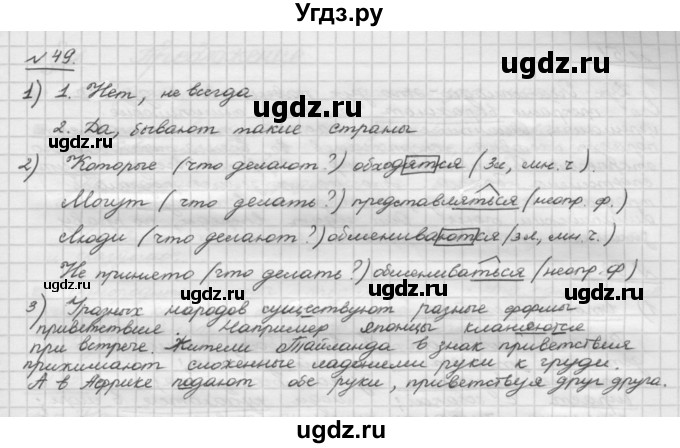 Угдз.ру
№ 49.
1) 1. Нет, не всегда
2. Да, бывают такие страны
2) Которые (что делают?) обходятся (3л, мн.ч.).
Могут (что делать?) представляться (неопр. ф.)
Люди (что делают?) обмениваются (3л, мн.ч.)
Не принято (что делать?) обмениваться (неопр. ф)
3) У разных народов существуют разные формы
приветствия. Например японцы кланяются
при встрече. Жители Тайланда в знак приветствия
прижимают сложенные ладонями руки к груди.
А в Африке подают обе руки, приветствуя друг друга.
ugdz.ru
ugdz.ru
ugdz.ru
ugdz.ru
ugdz.ru
ugdz.ru
ugdz.ru
ugdz.ru
ugdz.ru
ugdz.ru
ugdz.ru